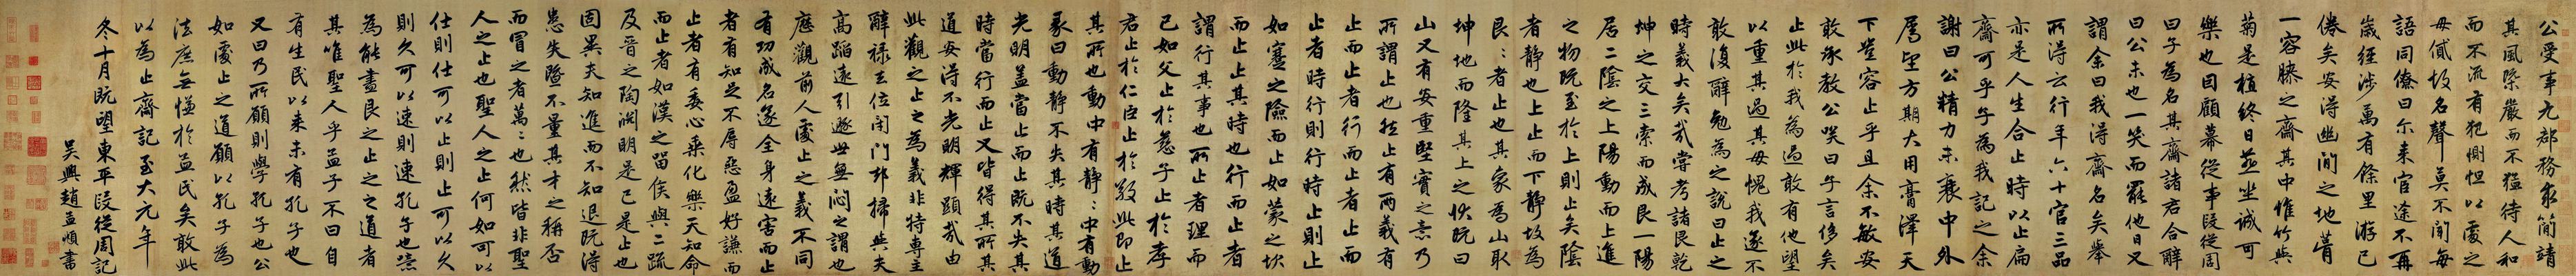 公受事尤部務最簡靖
其風際嚴而不猛待人和
而不流有犯惻怛以處之
毋貳故名聲莫不聞每
語同僚曰尒來宦途不再
歲經涉萬有餘里游已
倦矣安得幽閒之地葺
一容膝之齋其中惟竹與
菊是植終日燕坐誠可
樂也因顧幕從事段從周
曰子為名其齋諸君合辭
曰公未也一笑而罷他日又
謂余曰我得齋名矣舉
所得云行年六十官三品
亦是人生合止時以止扁
齋可乎子為我記之余
謝曰公精力未衰中外
屬望方期大用膏澤天
下豈容止乎且余不敏安
敢承教公笑曰子言侈矣
止此於我為過敢有他望
以重其過其毋愧我遂不
敢復辭勉為之說曰止之
時義大矣哉嘗考諸艮乾
坤之交三索而成艮一陽
居二陰之上陽動而上進
之物既至於上則止矣陰
者靜也上止而下靜故為
艮〻者止也其象為山取
坤地而隆其上之狀既曰
山又有安重堅實之意乃
所謂止也然止有兩義有
止而止者行而止者止而
止者時行則行時止則止
如蹇之險而止如蒙之坎
而止止其時也行而止者
謂行其事也所止者理而
已如父止於慈子止於孝
君止於仁臣止於敬此即止
其所也動中有靜〻中有動
彖曰動靜不失其時其道
光明蓋當止而止既不失其
時當行而止又皆得其所其
道安得不光明輝顯哉由
此觀之止之為義非特專主
辭祿去位閉門却掃與夫
高蹈遠引遯世無悶之謂也
歷觀前人處止之義不同
有功成名遂全身遠害而止
者有知足不辱惡盈好謙而
止者有委心乘化樂天知命
而止者如漢之留侯與二疏
及晉之陶淵明是已是止也
固異夫知進而不知退既得
患失暨不量其才之稱否
而冒之者萬〻也然皆非聖
人之止也聖人之止何如可以
仕則仕可以止則止可以久
則久可以速則速孔子也噫
為能盡艮之止之之道者
其唯聖人乎孟子不曰自
有生民以來未有孔子也
又曰乃所願則學孔子也公
如處止之道願以孔子為
法庶無慊於孟氏矣敢此
以為止齋記至大元年
冬十月既望東平段從周記
吳興趙孟頫書